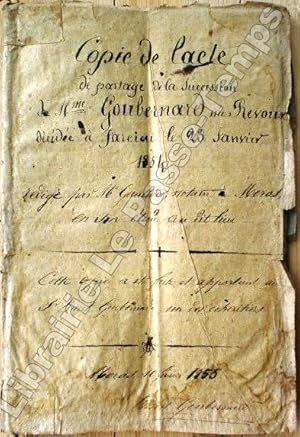 Copie de l'acte
de partage de la succession
de Mme Goubernard née Revour
décédée à le 25 Janvier
185
rédigé par Me notaire à Moras
en son étude au dit lieu
Cette copie a été faite et appartient au
Sr Goubernard un des cohéritiers
Moras 1855
Goubernard
Librairie Le Passe-Temps